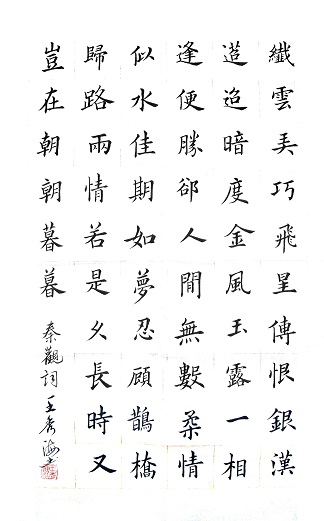 纖雲弄巧飛星傳恨銀漢
迢迢暗度金風玉露一相
逢便勝卻人間無數柔情
似水佳期如夢忍顧鵲橋
歸路兩情若是久長時又
豈在朝朝暮暮
秦觀詞 王秀海